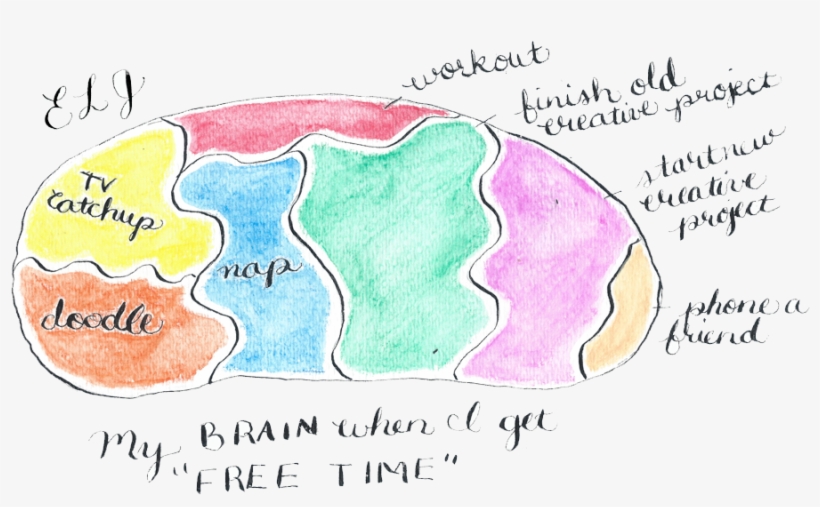 ELJ
workout
finish old
creative project
start new
creative
project
TV
Catchup
nap
doodle
phone a
friend
My BRAIN when I get
"FREE TIME"